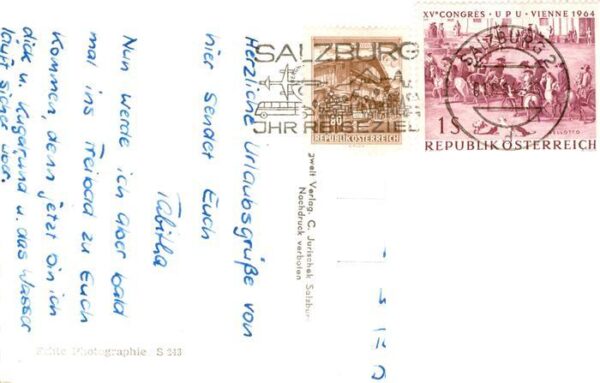 XV<sup>e</sup> CONGRÈS · UPU · VIENNE 1964
SALZBURG 2
1 S
REPUBLIK ÖSTERREICH
SALZBURG
JHR REISEZIEL
REPUBLIK ÖSTERREICH
Herzliche Urlaubsgrüße von
hier sendet Euch
Tabitha
Nun werde ich aber bald
mal ins Freibad zu Euch
kommen denn jetzt bin ich
dick u. kugelrund u. das Wasser
läuft sicher vor.
Verlag C. Jurischek Salzburg
Nachdruck verboten
Echte Photographie S 243